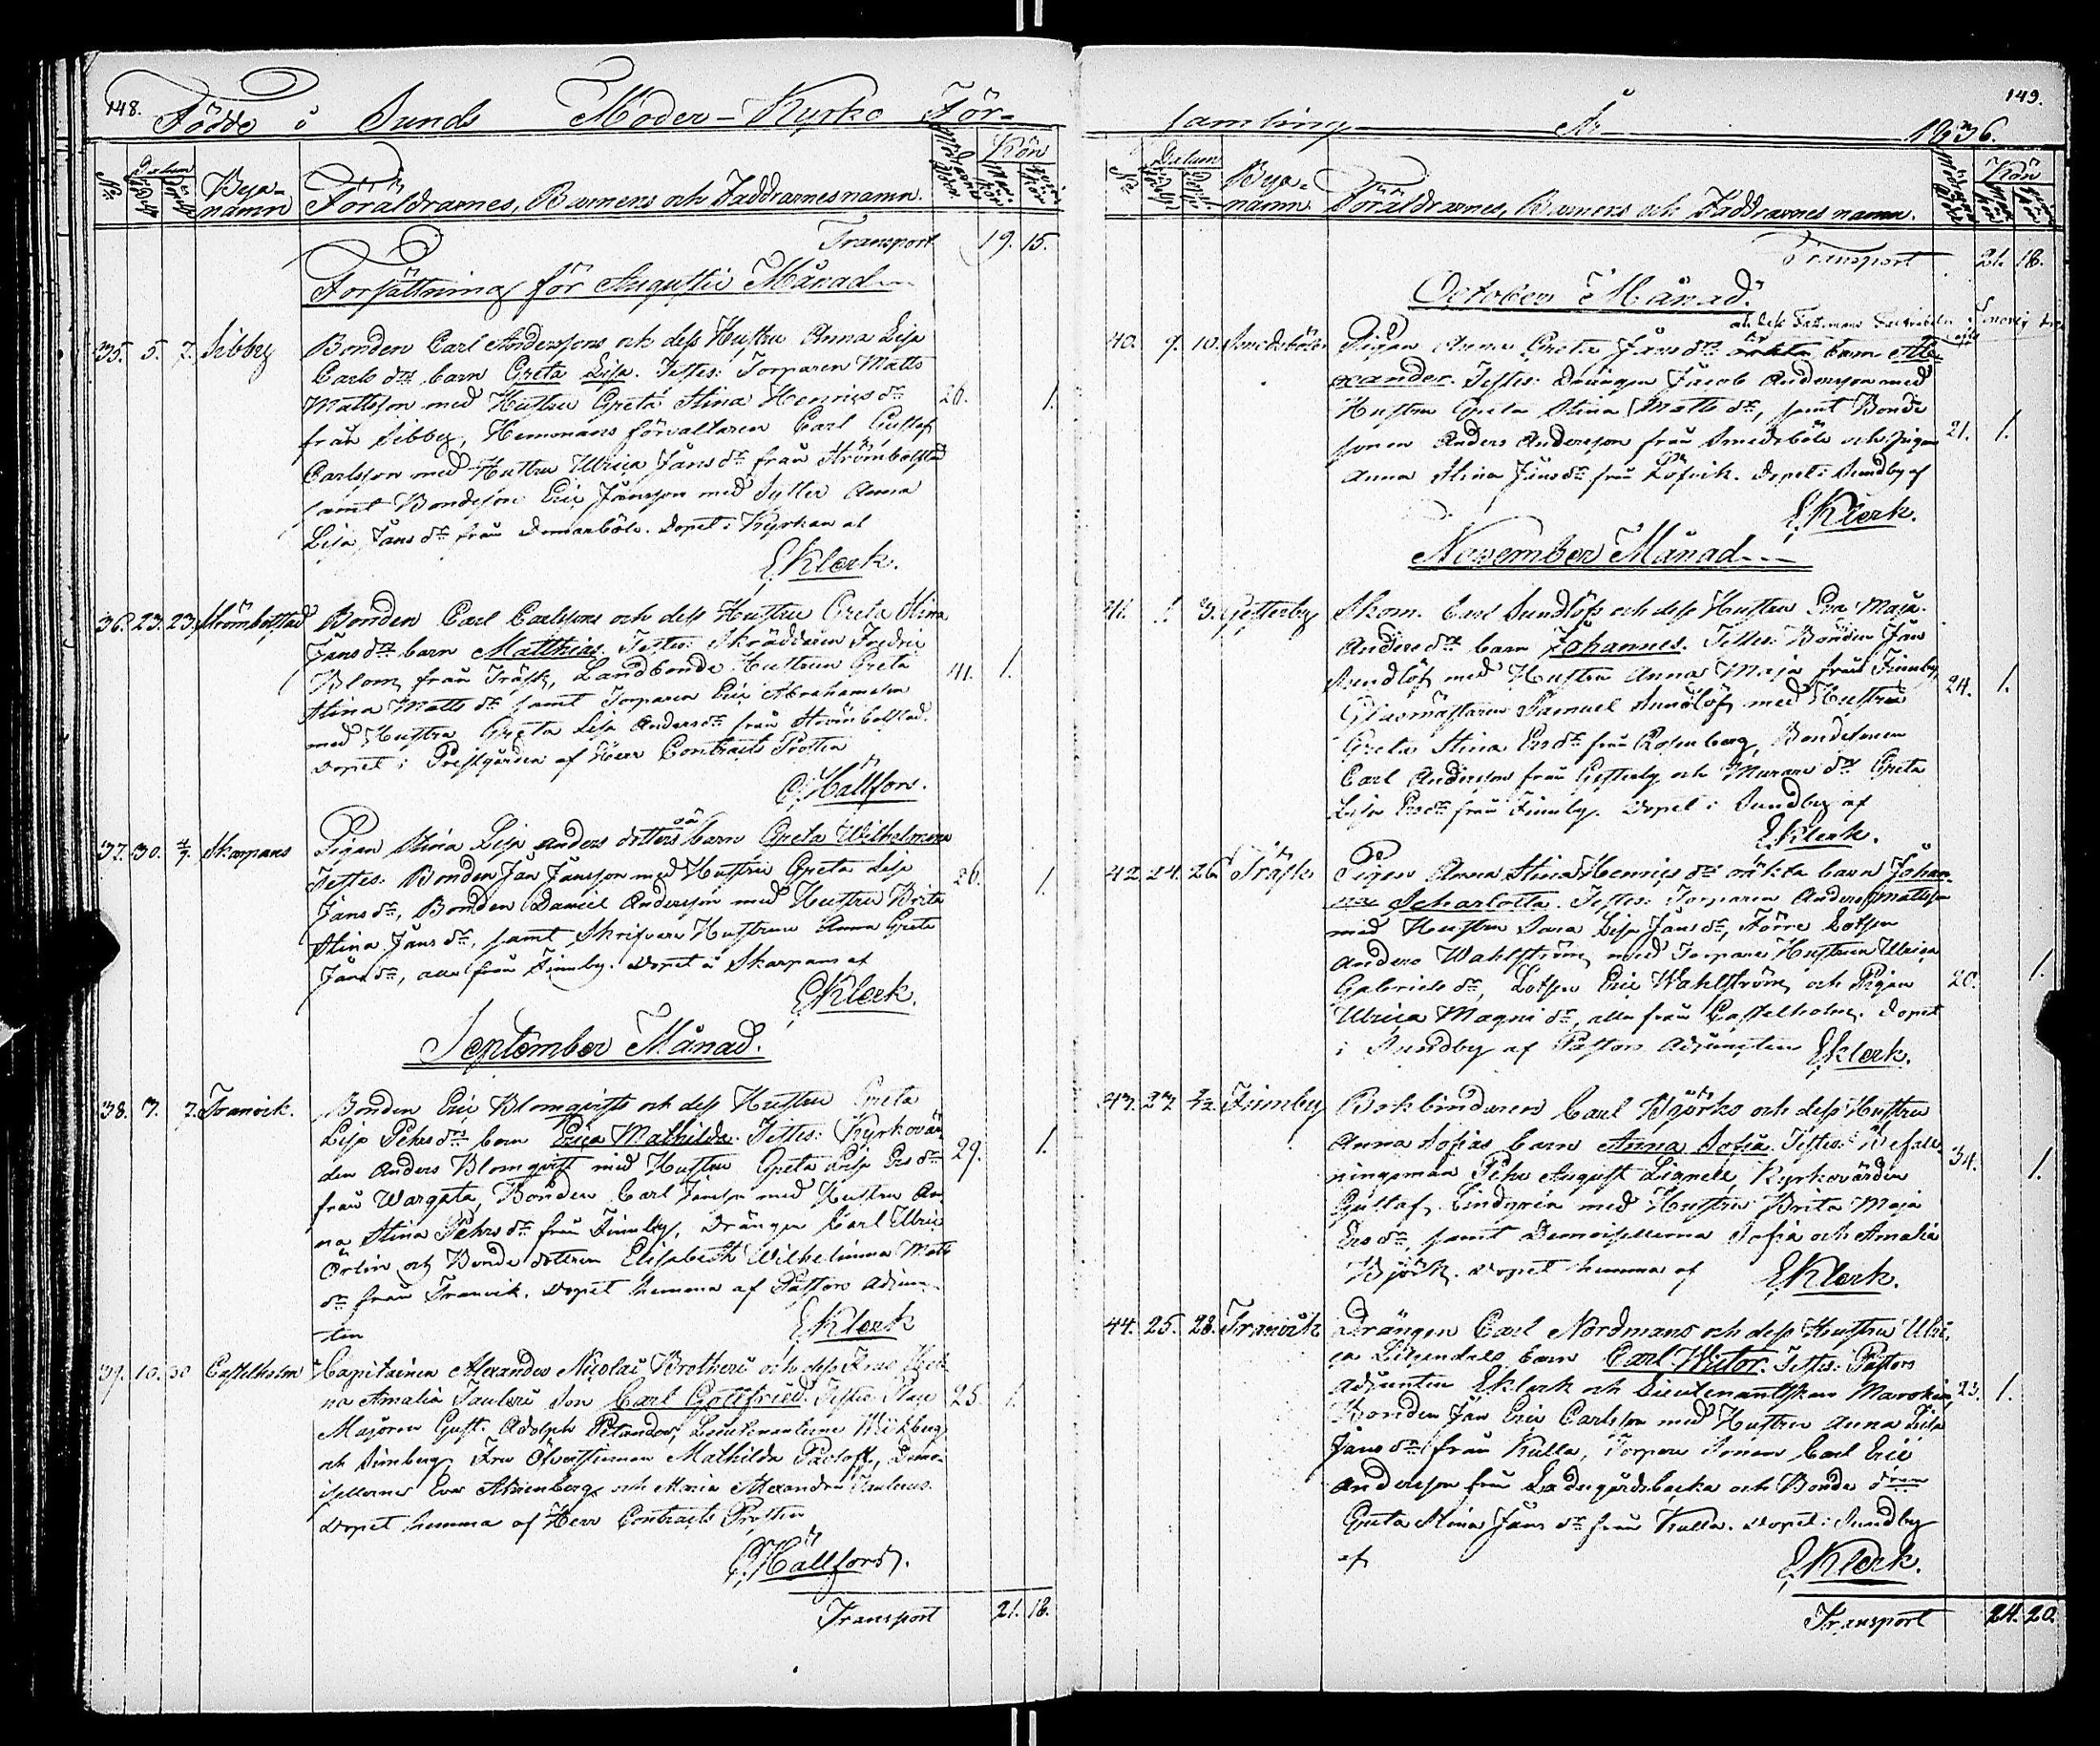 148.
Födde i Sunds Moder-Kyrko För-
No Datum Bya-namn Föräldrarnes, Barnens och Faddrarnes namn. Kön
Transport 19. 15.
Forsättning för Augusti Månad
35. 5. 7. Sibby Bonden Carl Anderssons och dess Hustru Anna Lisa
Carls dr barn Greta Lisa. Testes: Torparen Matts
Mattsson med Hustru Greta Stina Henrics dr 26. 1.
från Sibby, Hemmans förvaltaren Carl Gustaf
Carlsson med Hustru Ulrica Jans dr från Strömbolstad
samt Bondeson Eric Jansson med Syster Anna
Lisa Jans dr från Domarböle. Döpt i Kyrkan af
EKlerk.
36. 23. 23. Strömbolstad Bonden Carl Carlssons och dess Hustru Greta Stina
Jans drs barn Matthias. Testes: Skräddaren Fredric
Blom från Träsk, Landbonde Hustrun Greta 41. 1.
Stina Matts dr samt Torparen Eric Abrahamsson
med Hustru Greta Lisa Anders dr från Strömbolstad.
Döpet i Prestgården af Herr Contracts Prosten
Hällfors.
37. 30. 4/9. Skarpans Pigan Stina Lisa Anders dotters oä barn Greta Wilhelmina
Testes: Bonden Jan Jansson med Hustru Greta Lisa 26. 1.
Jans dr, Bonden Daniel Andersson med Hustru Brita
Stina Jans dr, samt Skrifvare Hustrun Anna Greta
Jans dr, alla från Finnby. Döpet i Skarpans af
EKlerk.
September Månad.
38. 3. 7. Tranvik. Bonden Eric Blomqvists och dess Hustru Greta
Lisa Pehrs drs barn Erica Mathilda. Testes: Kyrkovär-
den Anders Blomqvist med Hustru Greta Lisa Ers dr 29. 1.
från Wargata, Bonden Carl Jansson med Hustru An-
na Stina Pehrs dr från Finnby, Drängen Carl Ulric
Örlin och Bonde dottren Elisabeth Wilhelmina Matts
dr från Tranvik. Döpet hemma af Pastors Adjunc-
ten EKlerk
39. 10. 30 Castelholm Capitainen Alexander Nicolai Brotheri och dess Frus
na Amalia Taulers Son Carl Gottfried. Testes: Plats 25. 1.
Majoren Gust. Adolph Petander, Lieutenanterne Wikberg
och Fru Öfverstinnan Mathilda Pavloff, Demoi-
sellerne Eva Ahrenberg och Maria Alexandra
Döpet hemma af Herr Contracts Prosten
Hällfors.
Transport 21. 18.
149.
samling År 1836.
No Datum Bya-namn Föräldrarnes, Barnens och Faddrarnes namn. Kön
Transport 21. 18.
October Månad.
40. 9. 10. Smedsböle Pigan Anna Greta Jans drs oäkta barn Ale-
xander. Testes: Drängen Jacob Andersson med
Hustru Greta Stina Matts dr, samt Bonde
sonen Anders Andersson från Smedsböle och Pigan 21. 1.
Anna Stina Jans dr från Löfvik. Döpet i Sundby af
EKlerk.
November Månad
41. 1. 3. Gesterby Skom. Carl Sundlöfs och dess Hustru Eva Maja
Anders drs barn Johannes. Testes: Bonden Jan
Sundlöf med Hustru Anna Maja från Finnby,
Glasmästaren Samuel Sundlöf med Hustru 24. 1.
Greta Stina Ers dr från Rosenberg, Bondesonen
Carl Andersson från Gesterby och Murare dr Greta
Lisa Ers dr från Finnby. Döpet i Sundby af
EKlerk.
42. 24. 26 Träsk Pigan Anna Stina Henrics drs oäkta barn Johan-
na Scharlotta. Testes: Torparen Anders Mattsson
med Hustru Sara Lisa Jans dr, Förre Lotsen
Anders Wahlström med Torpare Hustrun Ulrica
Gabriels dr, Lotsen Eric Wahlström och Pigan 20. 1.
Ulrica Magni dr, alla från Castelholm. Döpet
i Sundby af Pastors Adjuncten EKlerk.
43. 27. Finnby Bokbindaren Carl Björks och dess Hustru
Anna Sofias barn Anna Sofia. Testes: Befall-
ningsman Pehr August Lignell, Kyrkovärden 34. 1.
Gustaf Lindgren med Hustru Brita Maja
Ers dr, samt Demoisellerna Sofia och Amalia
Björk. Döpet hemma af EKlerk.
44. 25. 28. Tranvik Drängen Carl Nordmans och dess Hustru Ulri-
ca Liljendals barn Carl Wictor. Testes: Pastors
Adjuncten EKlerk och Lieutenantskan 23. 1.
Bonden Jan Eric Carlsson med Hustru Anna Lisa
Jans dr från Kulla, Torpare Sonen Carl Eric
Andersson från Ladugårdsbacka och Bonde dren
Greta Stina Jans dr från Kulla. Döpet i Sundby
af EKlerk.
Transport 24. 20.